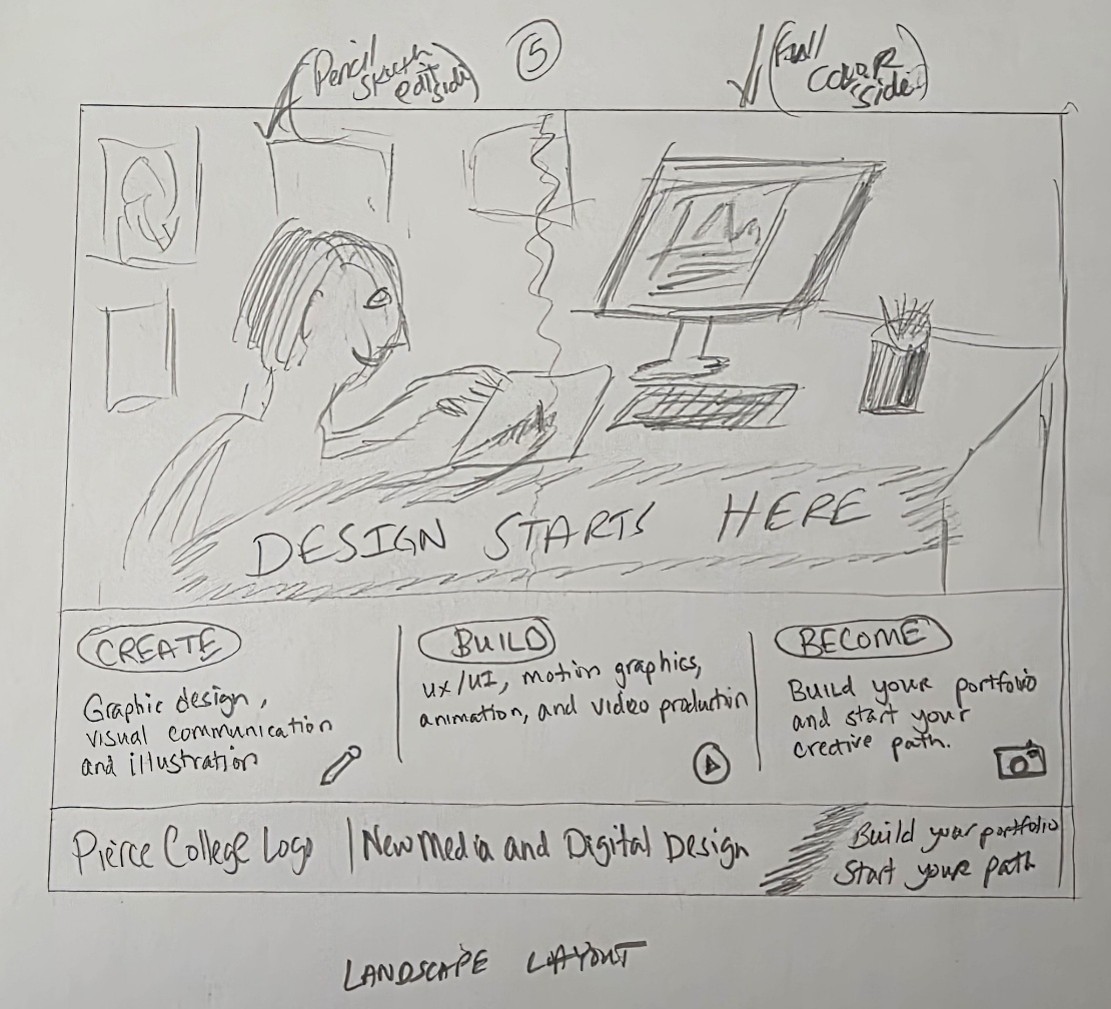 (Pencil
sketch
edit
side)
5
(Full
COLOR
side)
DESIGN STARTS HERE
CREATE
Graphic design,
visual communication
and illustration
BUILD
UX/UI, motion graphics,
animation, and video production
BECOME
BUILD your portfolio
and start your
crective path.
Pierce College Logo | New Media and Digital Design
Build your portfolio
Start your path
LANDSCAPE LAYOUT